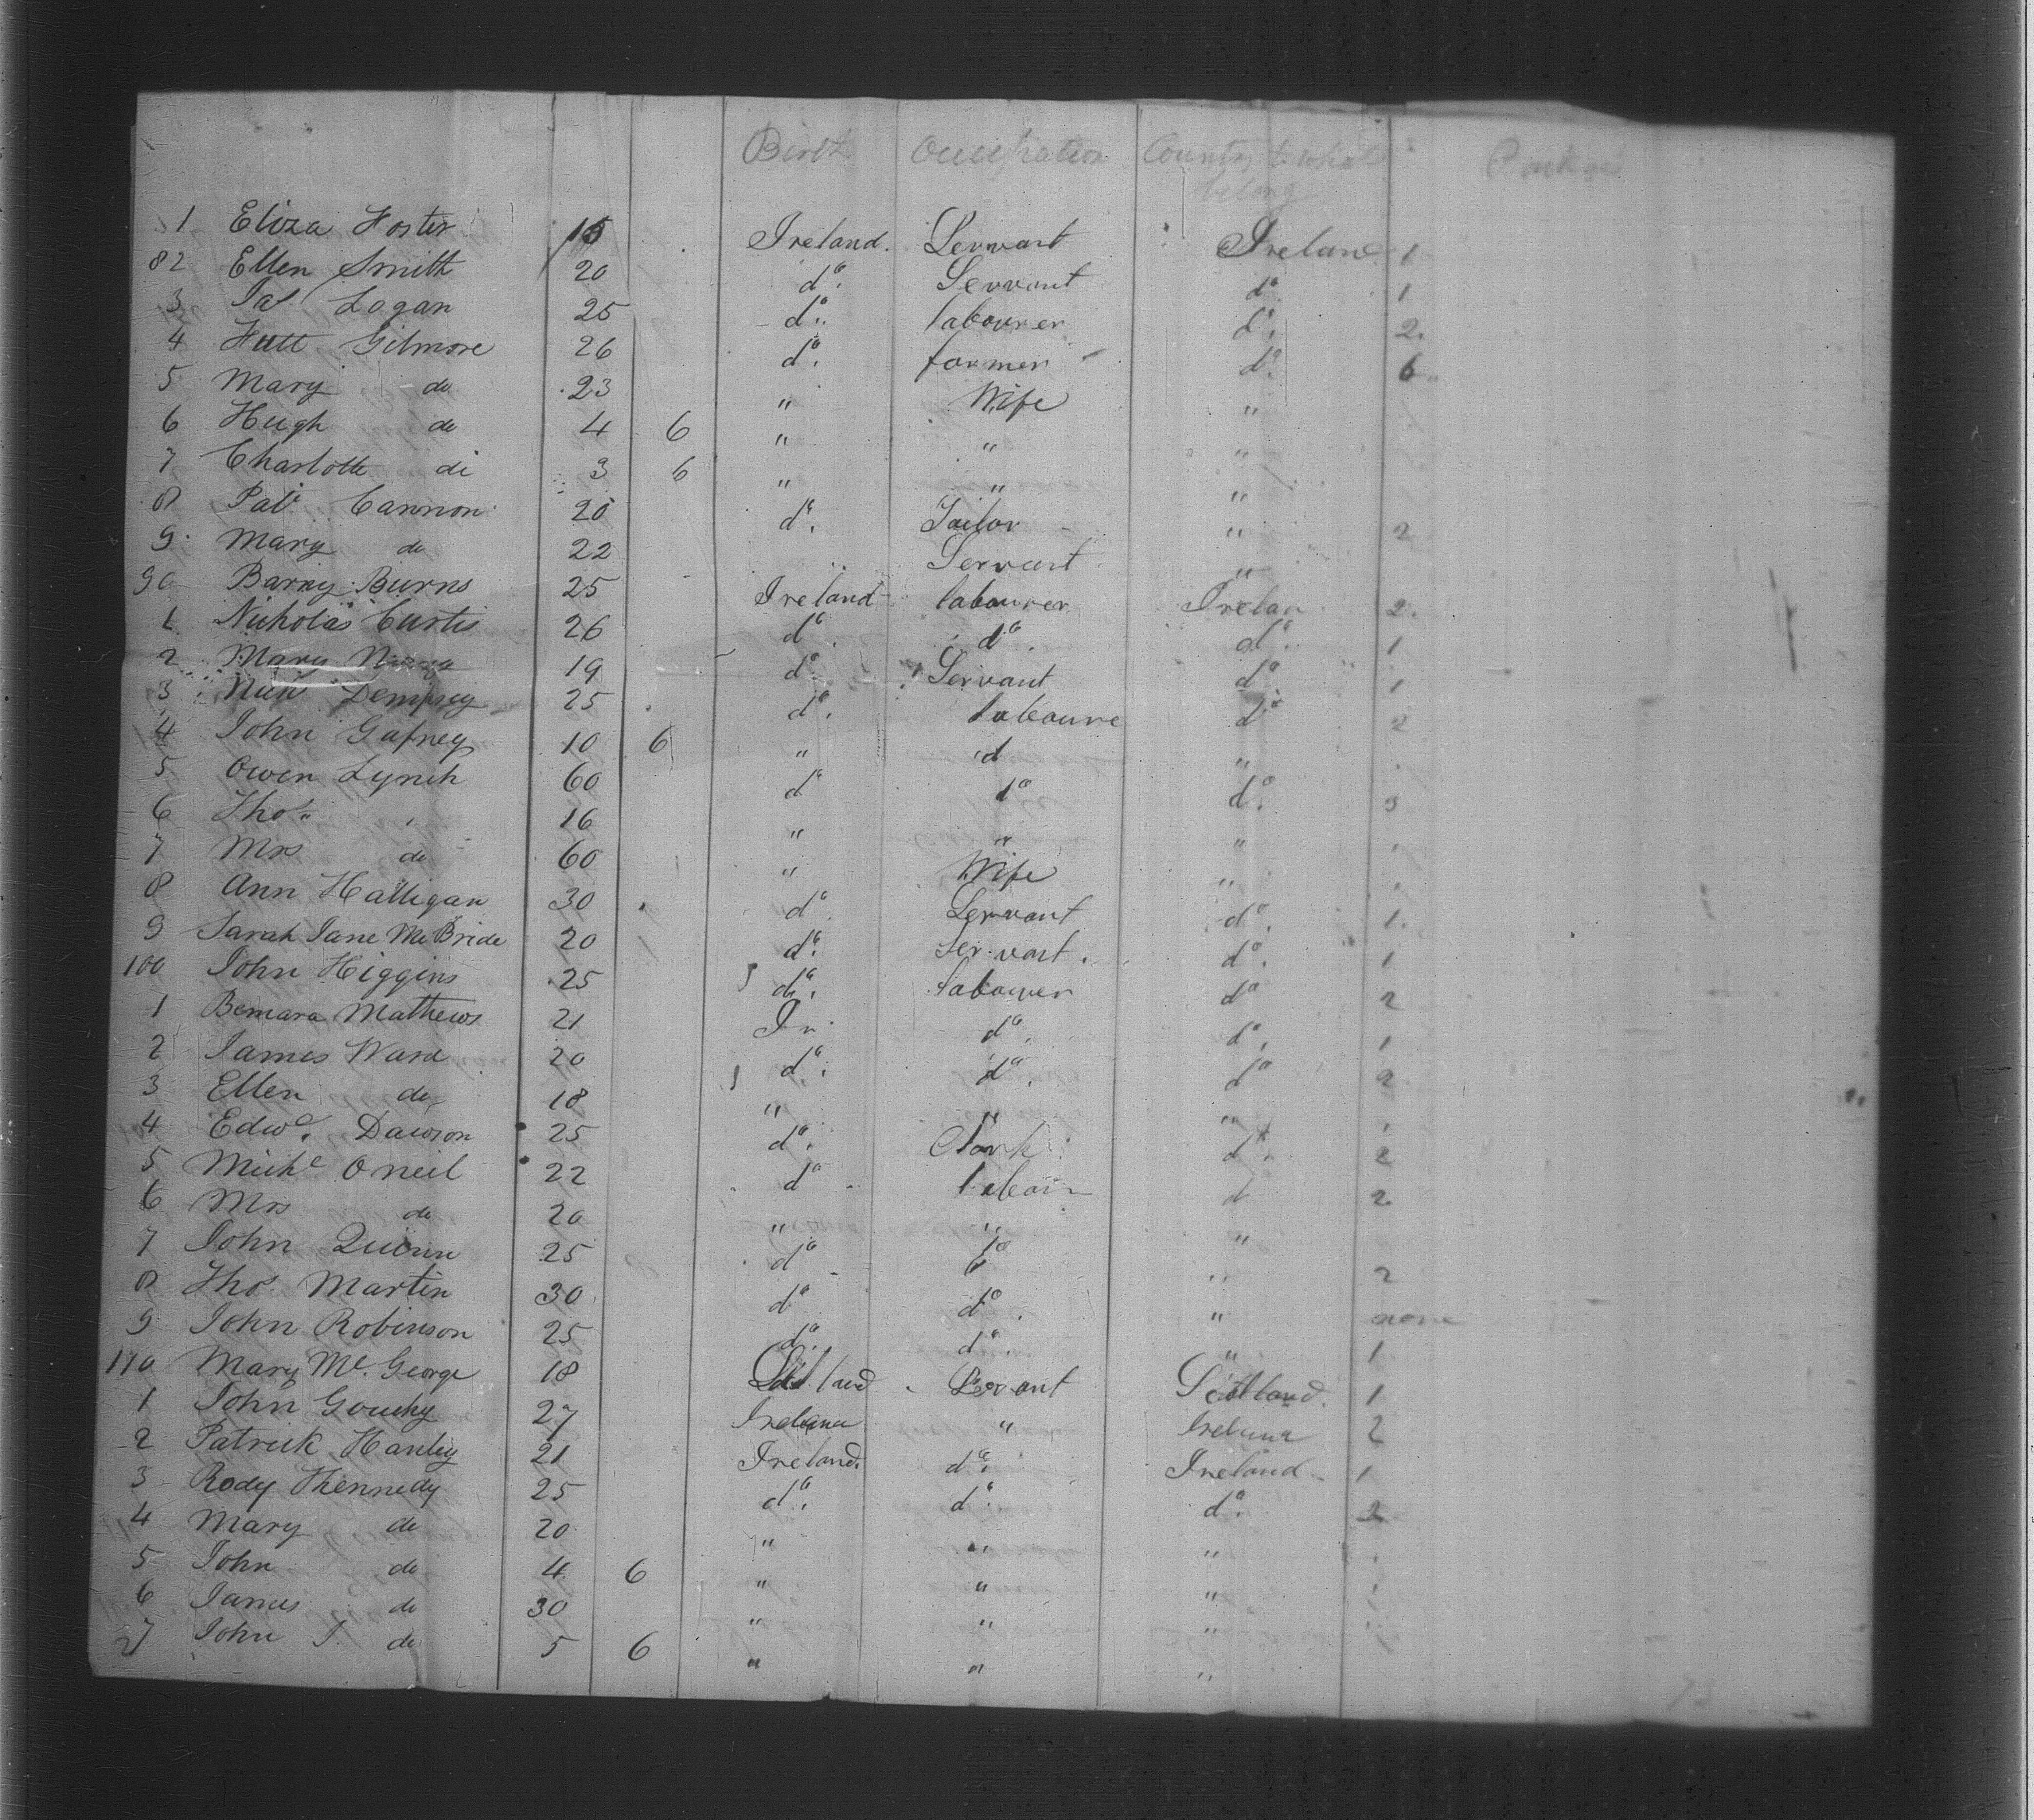 Birth Occupation Country to what
belong
1 Eliza Foster 15 Ireland. Servant Irelan 1
82 Ellen Smith 20 do. Servant do 1
3 Pat Logan 25 do. labourer do. 2.
4 Gilmore 26 do. farmer do. 6
5 Mary do 23 " Wife "
6 Hugh do 4 6 " " "
7 Charlotte di 3 6 " " "
8 Patk Cannon 20 do. Tailor " 2
9 Mary do 22 Servant "
90 Barny Burns 25 Ireland labourer Irelan 2.
1 Nicholas Curtis 26 do. do. do. 1
2 Mary 19 do. Servant do 1
3 Dempsey 25 do. laboure do 2
4 John Gafney 10 6 " d "
5 Owen Lynch 60 do do do. 3
6 Thos. " 16 " " "
7 Mrs do 60 " Wife "
8 Ann Halligan 30 do. Servant do. 1.
9 Sarah Jane McBride 20 do. Servant. do. 1
100 John Higgins 25 do. labourer do 2
1 Mathews 21 Ir. do. do. 1
2 James Ward 20 do. do. do 2
3 Ellen do 18 " " "
4 Edwd. Dawson 25 do. Clark do. 2
5 Michl Oneil 22 do labour d 2
6 Mrs do 20 " " "
7 John Quinn 25 do do " 2
8 Thos. Martin 30 do do. " none
9 John Robinson 25 do do. " 1
110 Mary Mc. George 18 Servant Scotland. 1
1 John 27 Ireland " Ireland 2
2 Patrick Hanley 21 Ireland. do. Ireland 1
3 Rody Kennedy 25 do. do. do. 2
4 Mary do 20 " " "
5 John do 4 6 " " "
6 James do 30 " " "
7 John J. do 5 6 " " "